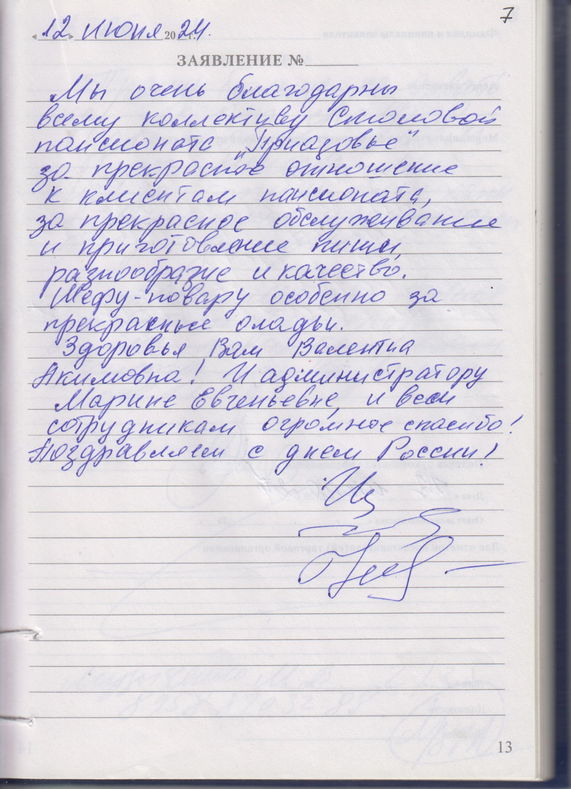 7
«12» июня 2024 г.
ЗАЯВЛЕНИЕ № ______
Мы очень благодарны
всему коллективу Столовой
пансионата "Приазовье"
за прекрасное отношение
к клиентам пансионата,
за прекрасное обслуживание
и приготовление пищи,
разнообразие и качество.
Шефу-повару особенно за
прекрасные оладьи.
Здоровья Вам Валентина
Акимовна! И администратору
Марине Евгеньевне, и всем
сотрудникам огромное спасибо!
Поздравляем с днем России!
13